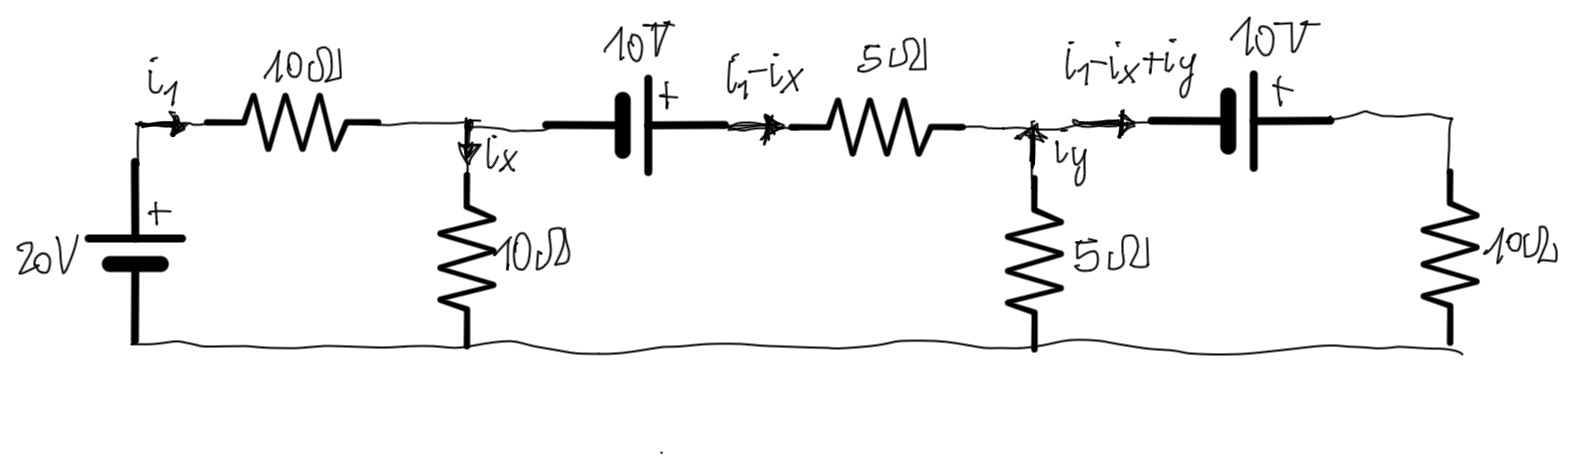 i₁
10Ω
10V
+
i₁-ix
5Ω
i₁-ix+iy
10V
+
ix
iy
20V
+
10Ω
5Ω
10Ω